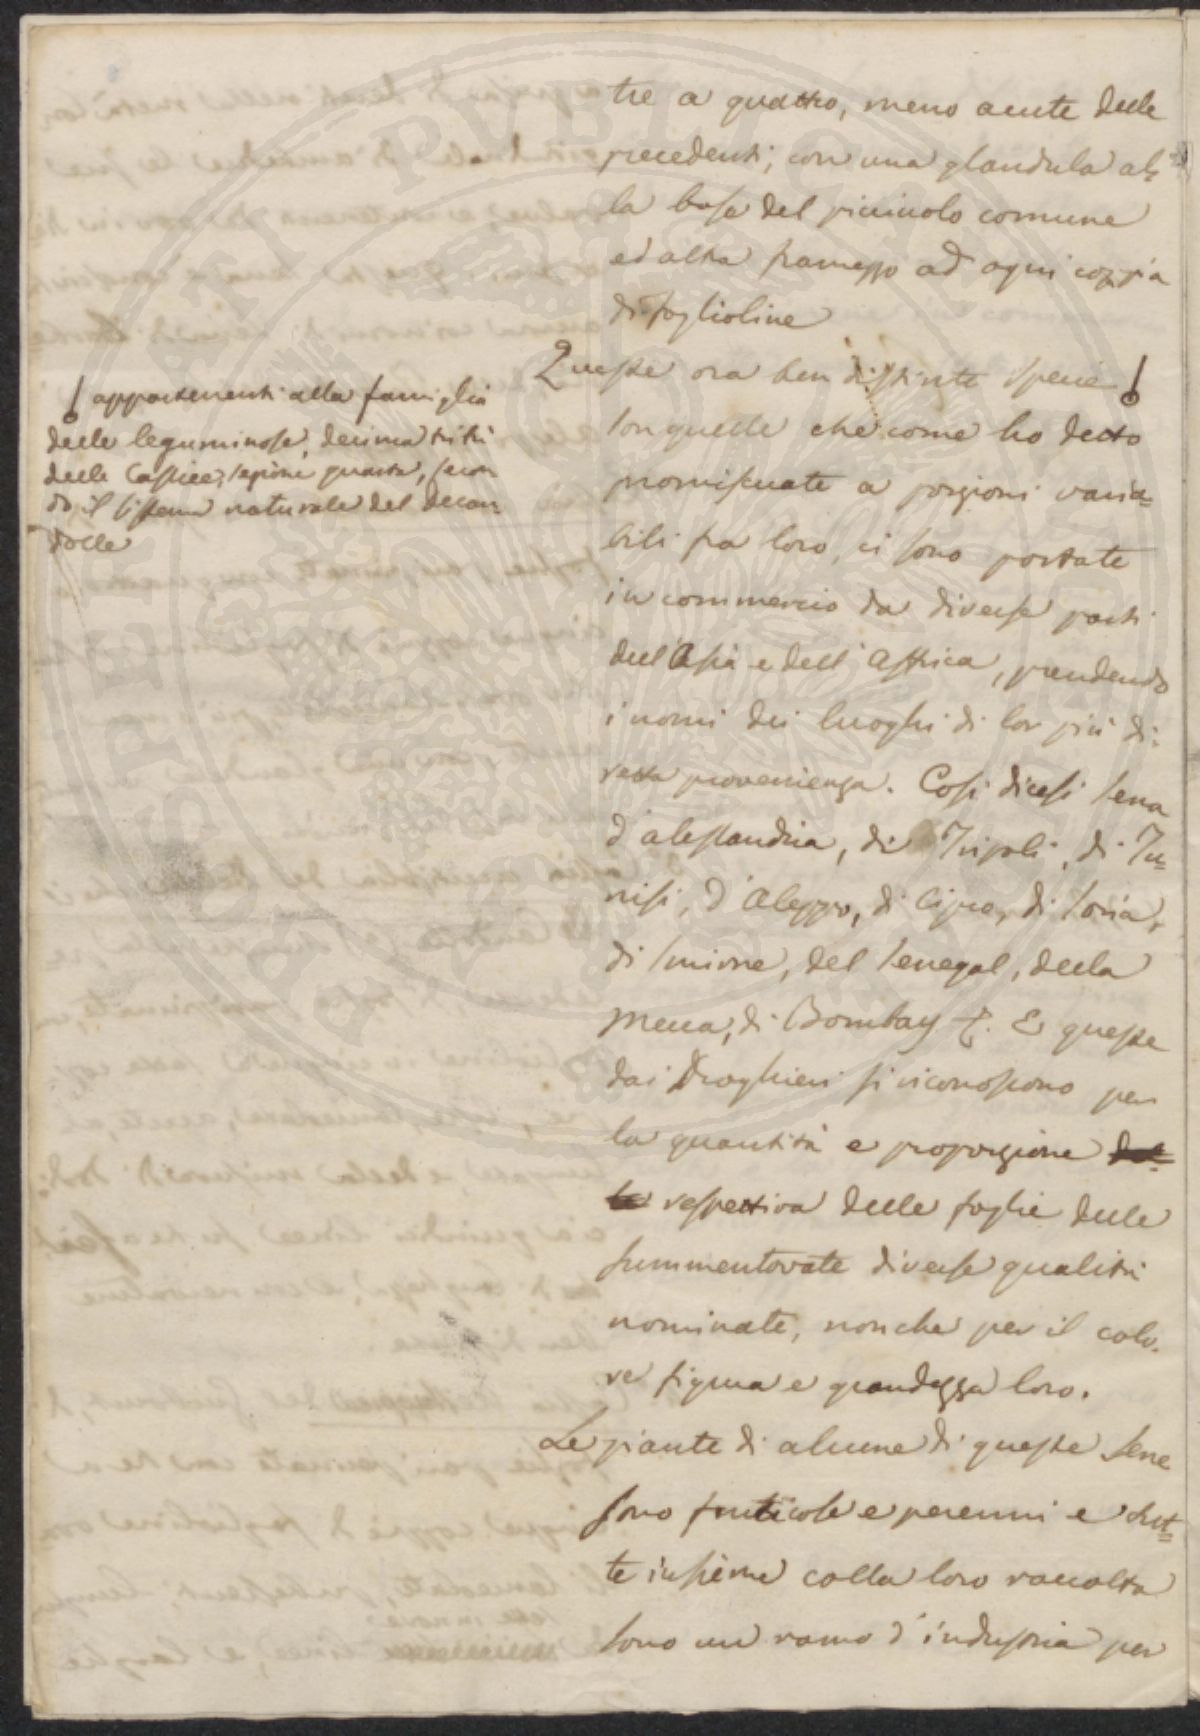 tre a quattro, meno acute delle
precedenti; con una glandula al=
la base del picciuolo comune
ed altra framezzo ad ogni coppia
di foglioline
Queste ora ben distinte specie
son quelle che come ho detto
promiscuate a porzioni varia=
bili fra loro, ci sono portate
in commercio da diverse parti
dell'Asia e dell'Affrica, prendendo
i nomi dei luoghi di lor più di-
retta provenienza. Così dicesi Sena
d'Alessandria, di Tripoli, di Tu=
nisi, d'Aleppo, di Cipro, di Soria,
di Smirne, del Senegal, della
Mecca, di Bombay &. E queste
dai Droghieri si riconoscono per
la quantità e proporzione del=
la respettiva delle foglie delle
summentovate diverse qualità
nominate, nonche per il colo-
re figura e grandezza loro.
Le piante di alcune di queste Sene
sono fruticose e perenni e tut=
te insieme colla loro raccolta
sono un ramo d'industria per
appartenenti alla famiglia
delle leguminose, decima tribù
delle Cassiee, sezione quarta, secon
do il sistema naturale del Decan=
dolle